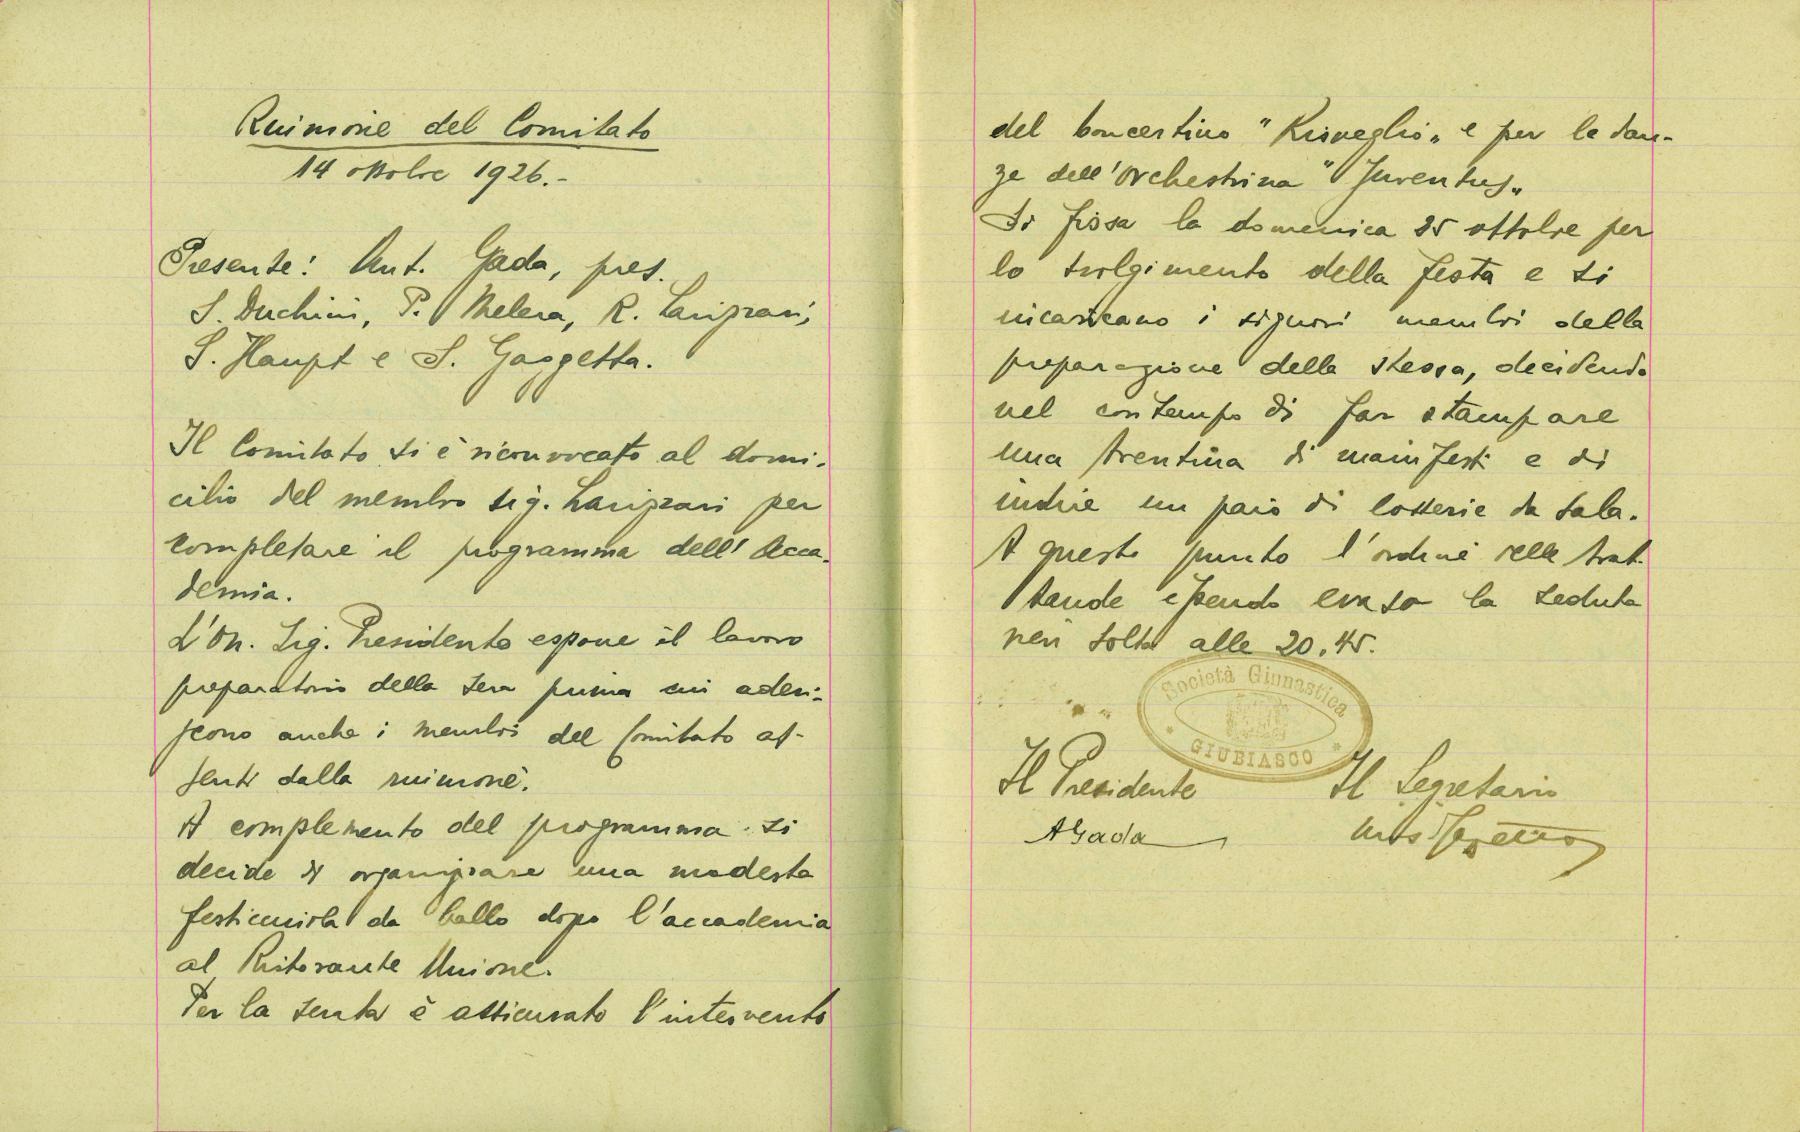 Riunione del Comitato
14 ottobre 1926.-
Presente: Ant. Gada, pres.
S. Duchini, P. Melera, R.
S. Haupt e S. Gaggetta.
Il Comitato si è riconvocato al domi-
cilio del membro sig. per
completare il programma dell'Acca-
demia.
L'On. Sig. Presidente espone il lavoro
preparatorio della sera prima cui aderi-
scono anche i membri del Comitato as-
senti dalla riunione.
A complemento del programma si
decide di organizzare una modesta
festicciuola da ballo dopo l'accademia
al Ristorante Unione.
Per la serata è assicurato l'intervento
del Concertino "Risveglio" e per le dan-
ze dell'Orchestrina "Juventus"
Si fissa la domenica 25 ottobre per
lo svolgimento della festa e si
incaricano i signori membri della
preparazione della stessa, decidendo
nel contempo di far stampare
una trentina di manifesti e di
indire un paio di lotterie da sala.
A questo punto l'ordine delle trat-
tande essendo evaso la seduta
vien tolta alle 20.45.
Società Ginnastica
GIUBIASCO
Il Presidente Il Segretario
AGada